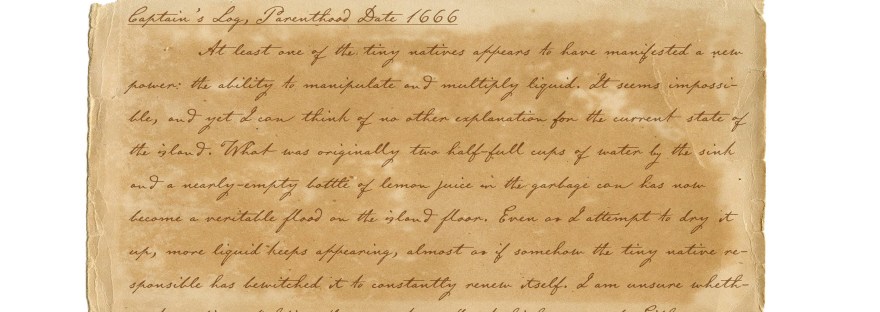 Captain's Log, Parenthood Date 1666
At least one of the tiny natives appears to have manifested a new
power: the ability to manipulate and multiply liquid. It seems impossi-
ble, and yet I can think of no other explanation for the current state of
the island. What was originally two half-full cups of water by the sink
and a nearly-empty bottle of lemon juice in the garbage can has now
become a veritable flood on the island floor. Even as I attempt to dry it
up, more liquid keeps appearing, almost as if somehow the tiny native re-
sponsible has bewitched it to constantly renew itself. I am unsure wheth-